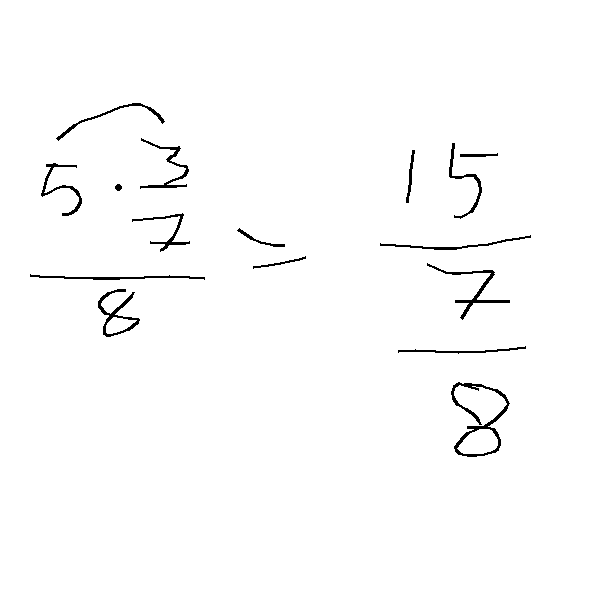 5 · 3/7 / 8 = 15 / 7 / 8